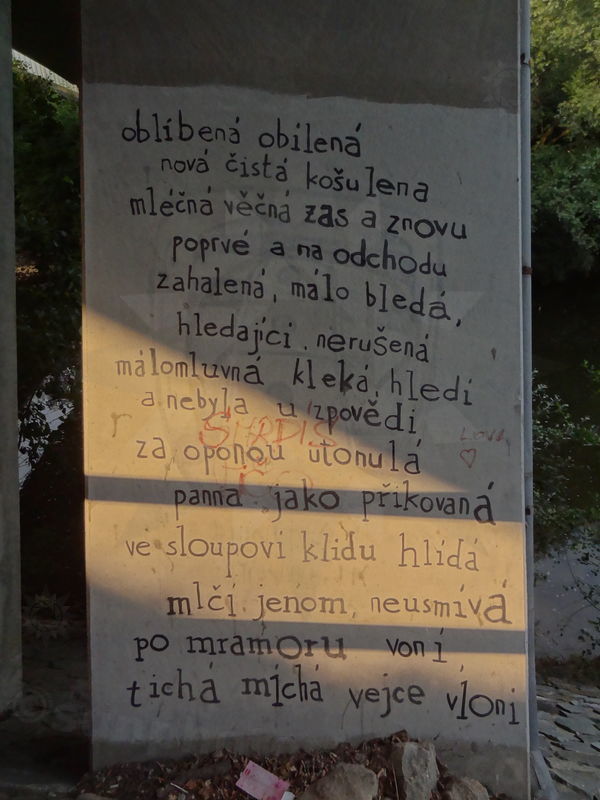 oblíbená obílená
nová čistá košulena
mléčná věčná zas a znovu
poprvé a na odchodu
zahalená, málo bledá,
hledající, nerušená
málomluvná kleká, hledí
a nebyla u zpovědi
za oponou utonulá
panna jako přikovaná
ve sloupoví klidu hlídá
mlčí jenom, neusmívá
po mramoru voní
tichá míchá vejce vloni
LOVE